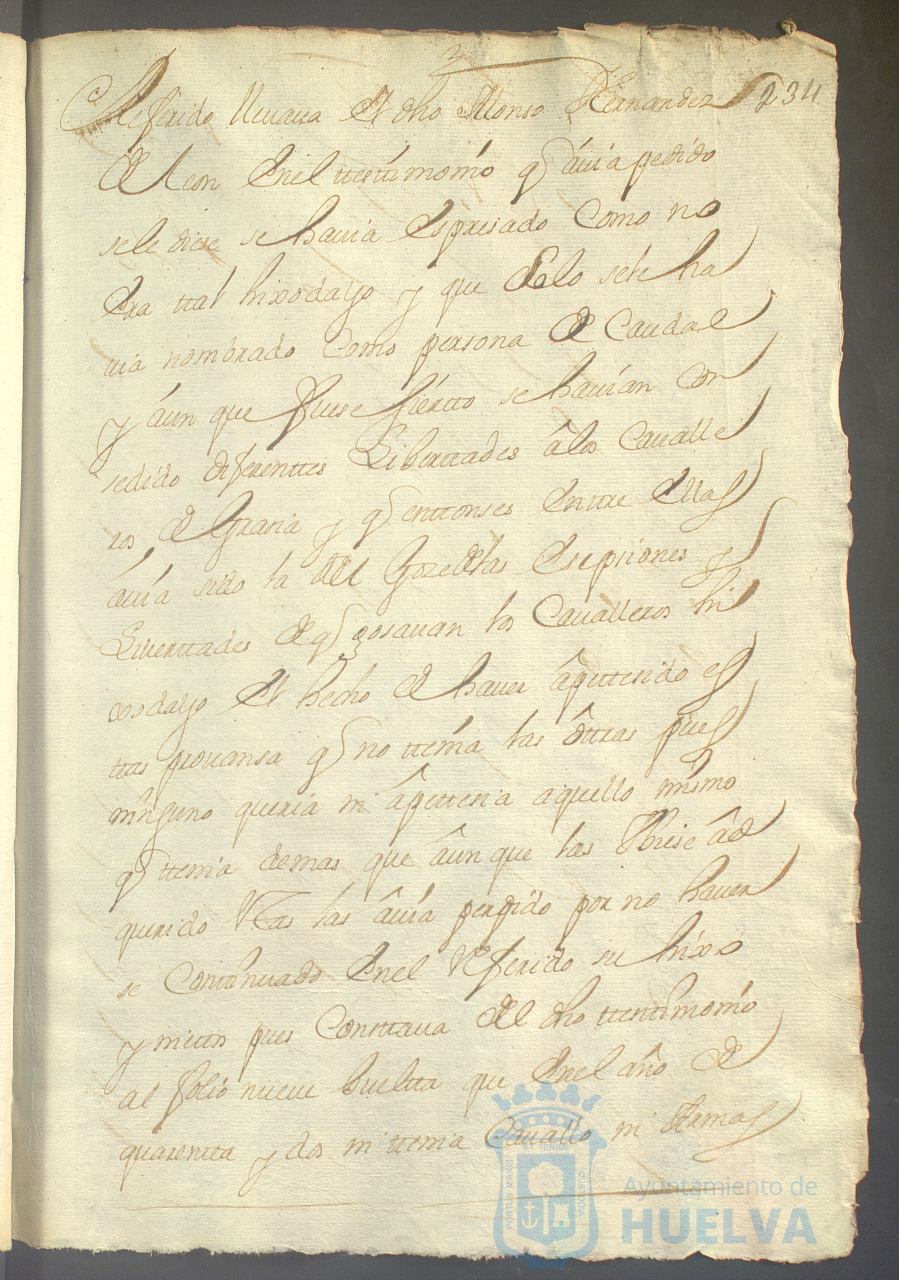 234
Referido llevava El dho Alonso Hernandez
de Leon Enel ttesttimonio q avia pedido
sele diese se havia Espresado Como no
Era ttal hixodalgo y que selo sele ha
via nombrado Como persona de Caudal
y aun que fuese sierto se havian Con
sedido diferenttes Liberttades a los Cavalle
ros de Grasia y q enttonses Enttre Ellas
avia sido la del Gozedelas Esepsiones y
Liverttades de q gosavan los Cavalleros hi
xosdalgo El hecho de haver apettesido es
ttas provansa q no ttenia las ottras pues
ninguno queria ni apetteria aquello mismo
q ttenia demas que aun que las Vbiese ad
querido las avia perdido por no haver
se Conttinuado Enel Referido su hixo
y nietto pues Consttava del dho ttesttimonio
al folio nueve bueltta que Enel año de
quarentta y dos ni ttenia Cavallo ni Armas
PORTUS MARIS ET TERRAE CUSTODIA
Ayuntamiento de
HUELVA